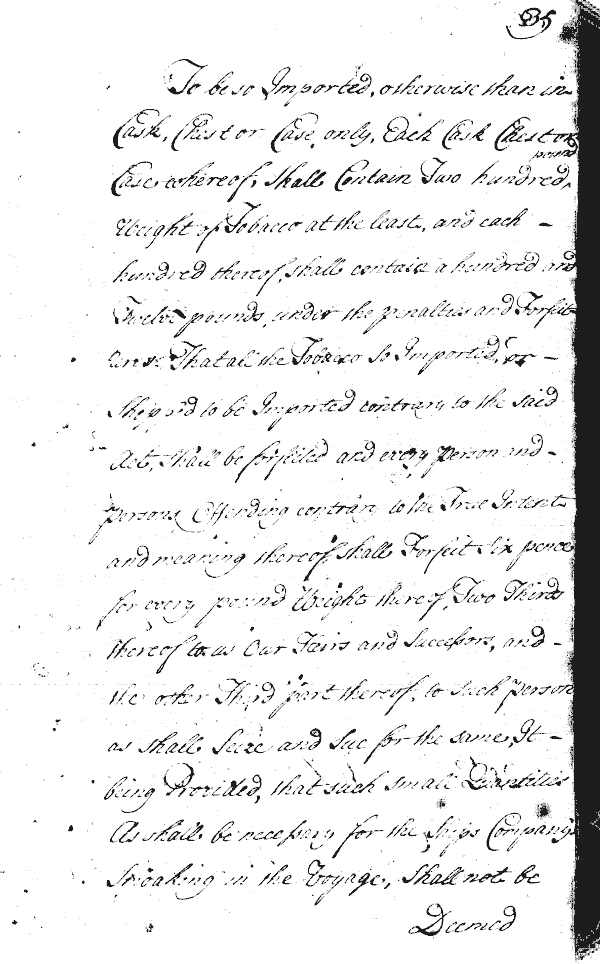 35
To be so Imported, otherwise than in
Cask, Chest or Case only, Each Cask Chest or
pound
Case whereof, shall Contain Two hundred
Weight of Tobacco at the least, and each -
hundred thereof, shall contain a hundred and
Twelve pounds, under the penalties and Forfeit
ures That all the Tobacco So Imported, or -
Shipp'd to be Imported contrary to the said
Act, Shall be forfeited and every Person and -
Persons Offending contrary to the True Intent
and meaning thereof, shall Forfeit Six pence
for every pound Weight thereof, Two Thirds
thereof to us Our Heirs and Successors, and -
the other Third part thereof, to such Person
as shall Seize and Sue for the same, It -
being Provided, that such small Quantities
As shall be necessary for the Ships Company's
Smoaking in the Voyage, Shall not be
Deemed